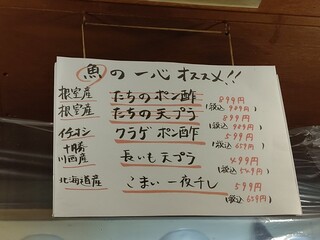 魚の一心オススメ!!
根室産 たちのポン酢 899円
(税込989円)
根室産 たちの天プラ 899円
(税込989円)
イチオシ クラゲポン酢 599円
(税込659円)
十勝川西産 長いも天プラ 499円
(税込549円)
北海道産 こまい一夜干し 599円
(税込659円)